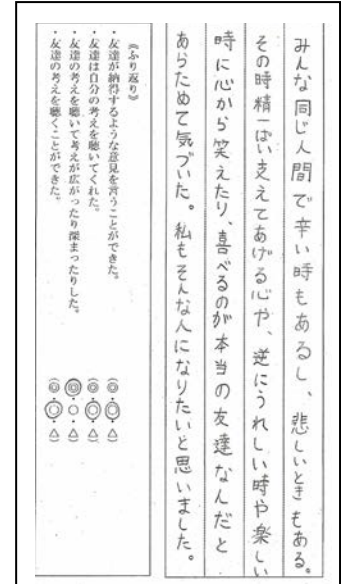 みんな同じ人間で辛い時もあるし、悲しいときもある。
その時精一ぱい支えてあげる心や、逆にうれしい時や楽しい
時に心から笑えたり、喜べるのが本当の友達なんだと
あらためて気づいた。私もそんな人になりたいと思いました。
《ふり返り》
・友達が納得するような意見を言うことができた。(◎・○・△)
・友達は自分の考えを聴いてくれた。(◎・○・△)
・友達の考えを聴いて考えが広がったり深まったりした。(◎・○・△)
・友達の考えを聴くことができた。(◎・○・△)